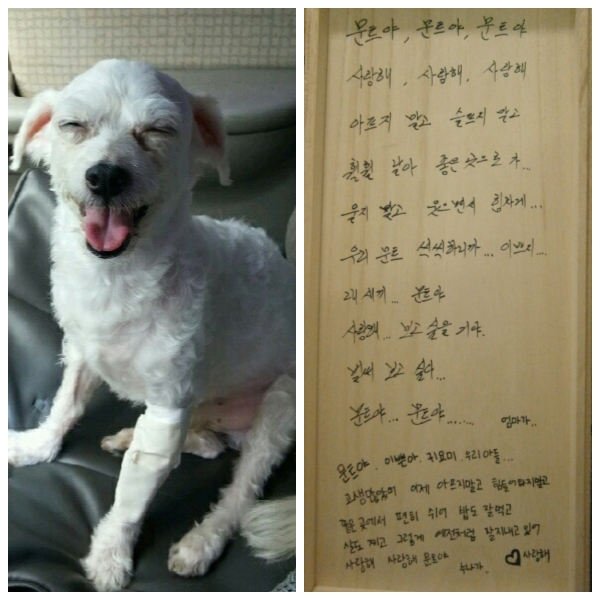 문트야, 문트야, 문트야
사랑해, 사랑해, 사랑해
아프지 말고 슬프지 말고
훨훨 날아 좋은 곳으로 가...
울지 말고 웃으면서 힘차게...
우리 문트 씩씩하니까... 이쁘지...
내 새끼... 문트야
사랑해... 보고 싶을 거야.
벌써 보고 싶다...
문트야... 문트야.......
엄마가..
문트야. 이쁜아. 귀요미. 우리아들...
고생많았어 이제 아프지말고 힘들어하지말고
좋은 곳에서 편히 쉬어 밥도 잘먹고
살도 찌고 그렇게 예전처럼 잘지내고 있어
사랑해 사랑해 문트야 ♡사랑해
누나가.